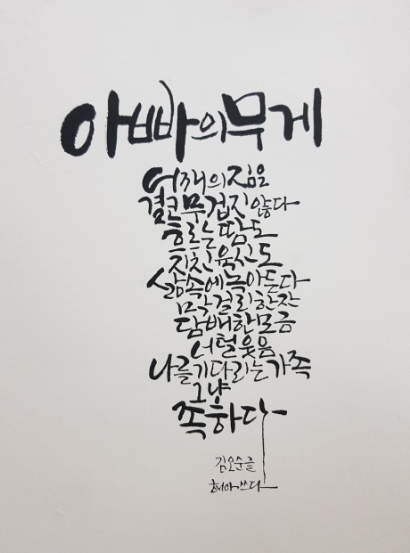 아빠의 무게
어깨의 짐은
결코 무겁지 않다
흐르는 땀도
지친 육신도
삶속에 녹아든다
막걸리 한잔
담배 한모금
너털웃음
나를 기다리는 가족
그냥
족하다
김오순 글
쓰다